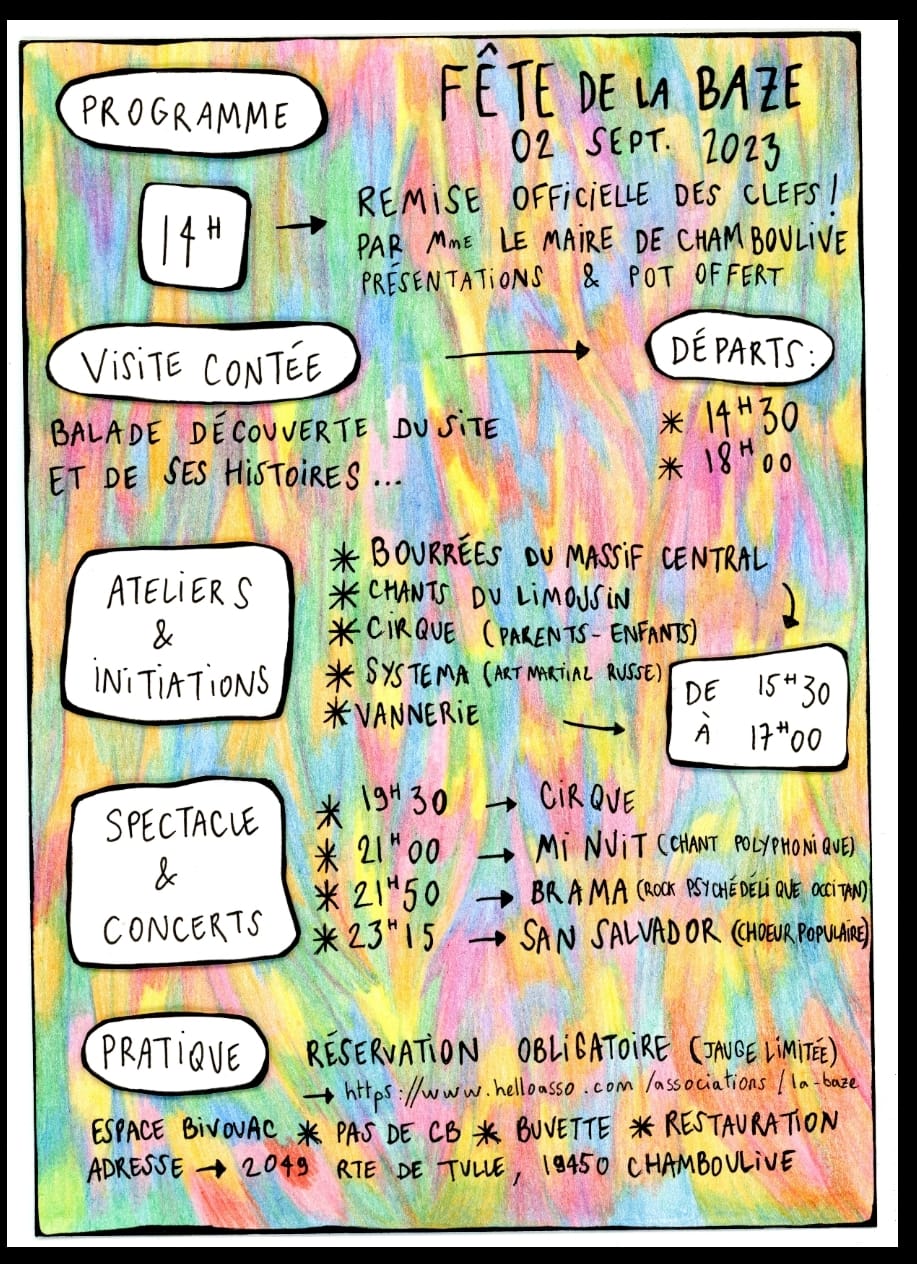 PROGRAMME
FÊTE DE LA BAZE
02 SEPT. 2023
14H → REMISE OFFICIELLE DES CLEFS !
PAR Mme LE MAIRE DE CHAMBOULIVE
PRÉSENTATIONS & POT OFFERT
VISITE CONTÉE → DÉPARTS :
BALADE DÉCOUVERTE DU SITE
ET DE SES HISTOIRES ...
* 14H30
* 18H00
ATELIERS
&
INITIATIONS
* BOURRÉES DU MASSIF CENTRAL
* CHANTS DU LIMOUSIN
* CIRQUE (PARENTS-ENFANTS)
* SYSTEMA (ART MARTIAL RUSSE)
* VANNERIE →
DE 15H30
À 17H00
SPECTACLE
&
CONCERTS
* 19H30 → CIRQUE
* 21H00 → MI NUIT (CHANT POLYPHONIQUE)
* 21H50 → BRAMA (ROCK PSYCHÉDÉLIQUE OCCITAN)
* 23H15 → SAN SALVADOR (CHOEUR POPULAIRE)
PRATIQUE
RÉSERVATION OBLIGATOIRE (JAUGE LIMITÉE)
→ https://www.helloasso.com/associations/la-baze
ESPACE BIVOUAC * PAS DE CB * BUVETTE * RESTAURATION
ADRESSE → 2049 RTE DE TULLE, 19450 CHAMBOULIVE